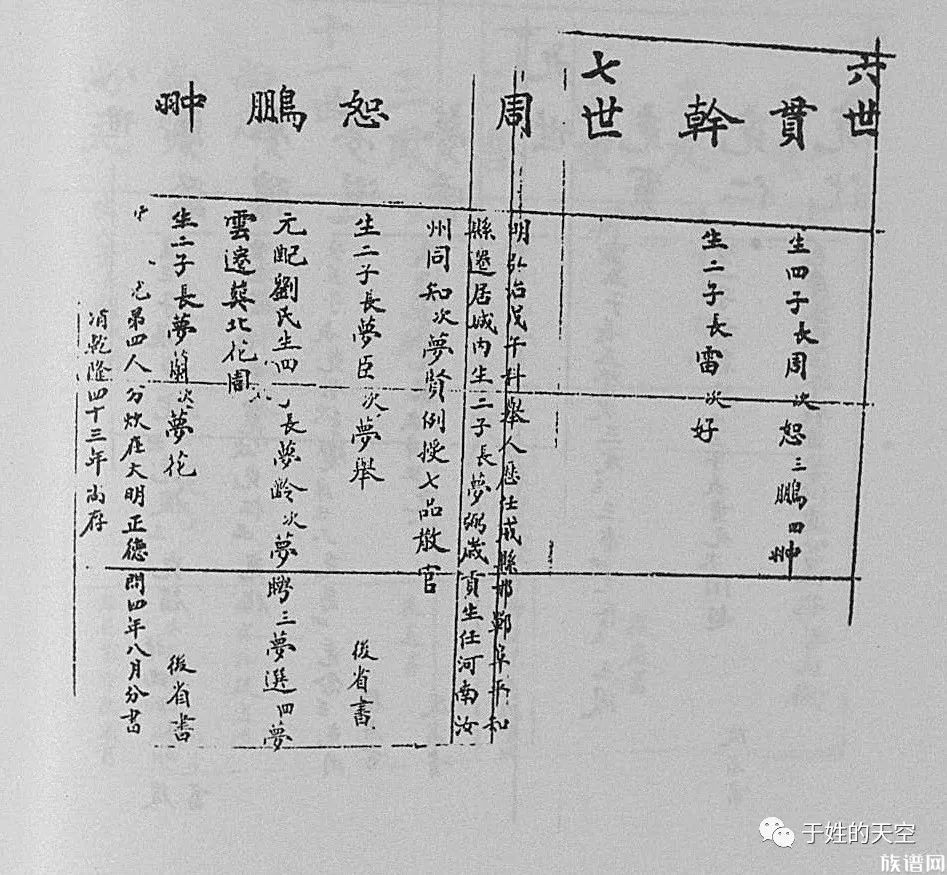 六世
貫
生四子長周次恕三鵬四翀
幹
生二子長雷次好
七世
周
明弘治戊午科舉人歷任成縣邯鄲阜平和
縣遷居城内生二子長夢弼歲貢生任河南汝
州同知次夢賢例授七品散官
恕
生二子長夢臣次夢舉 後省書
鵬
元配劉民生四長夢齡次夢聘三夢選四夢
雲遷葬北佗
翀
生二子長夢蘭次夢花 後省書
弟四人分炊在大明正德間四年八月分書
清乾隆四十三年尚存
于姓的天空
族谱网